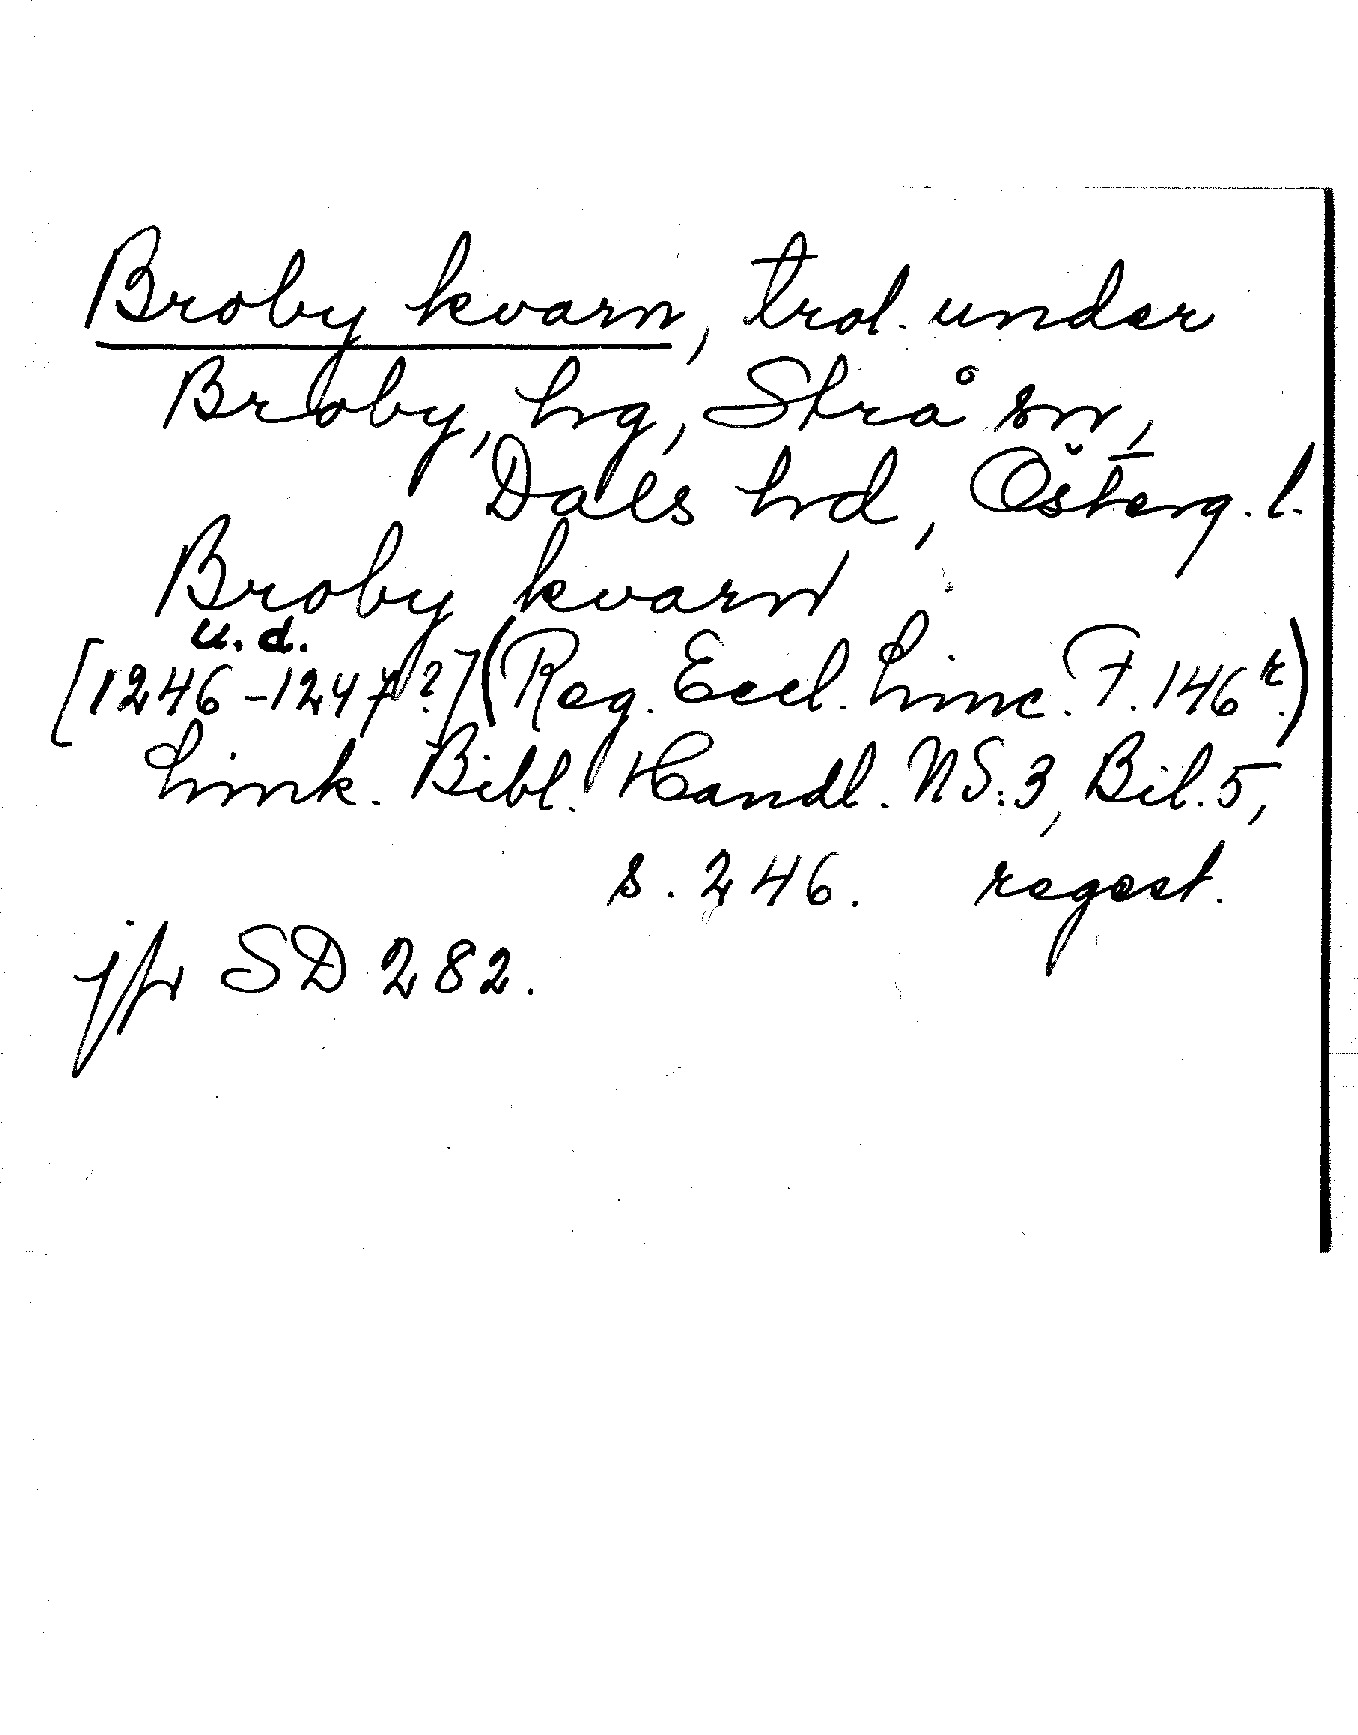 Broby kvarn, trol. under
Broby, hg, Strå sn,
Dals hd, Österg. l.
Broby kvarn
u. d.
[1246-1247?] (Reg. Eccl. Linc. F. 146r.)
Link. Bibl. Handl. NS:3, Bil. 5,
s. 246. regest.
jfr SD 282.